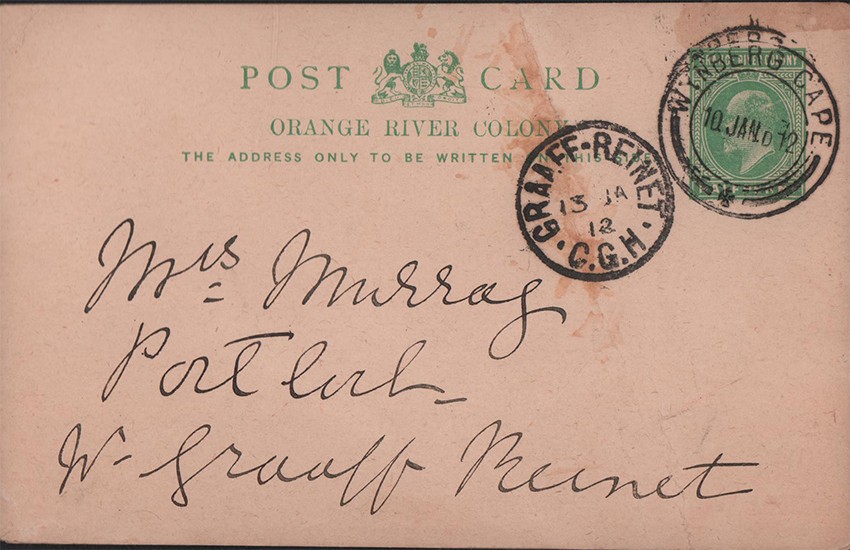 POST CARD
ORANGE RIVER COLONY
THE ADDRESS ONLY TO BE WRITTEN ON THIS
WYNBERG CAPE
10 JAN 12
GRAAFF-REINET
13 JA
12
C.G.H.
Mrs Murray
Portlock
Nr Graaff Reinet